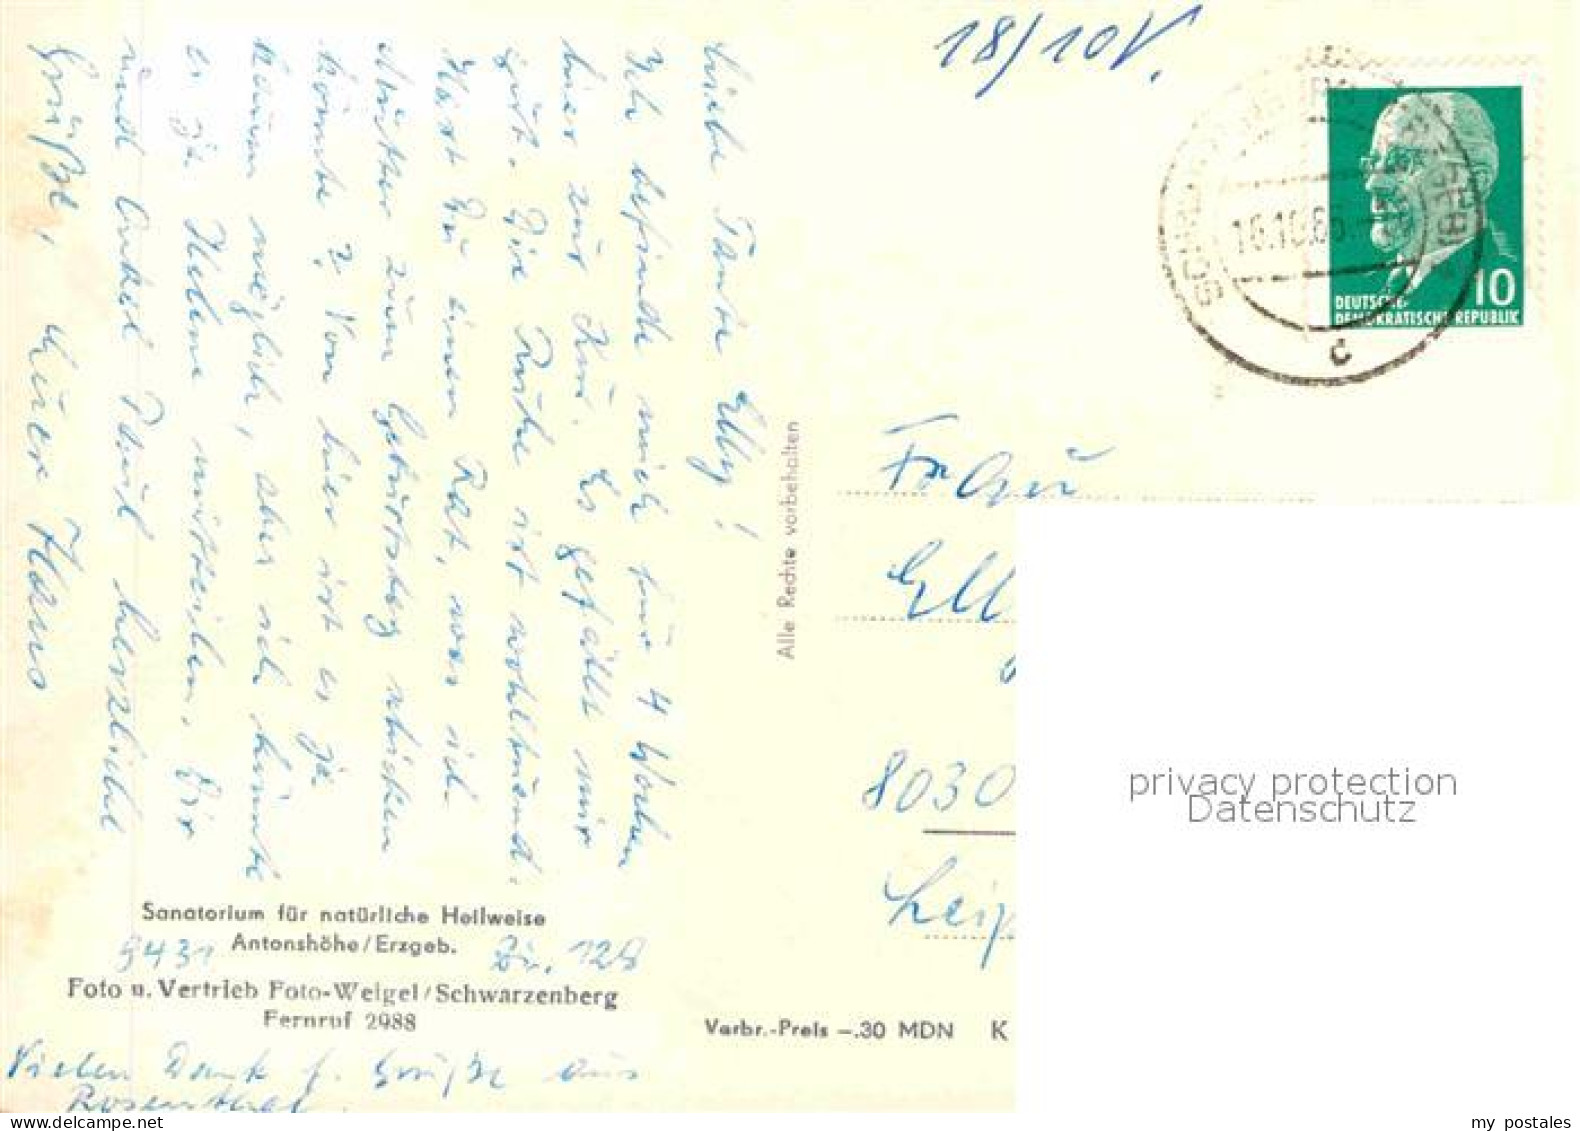 18/10 V.
Liebe Tante Elly!
Ich befinde mich für 4 Wochen
hier zur Kur. Es gefällt mir
gut. Die Ruhe ist wohltuend.
Hast Du einen Rat, was ich
Mutter zum Geburtstag schicken
könnte? Von hier ist es ja
kaum möglich, aber ich könnte
es ja Helene mitteilen. Dir
und Onkel Paul herzliche
Grüße, Euer Hans
Sanatorium für natürliche Heilweise
Antonshöhe/Erzgeb.
9431 Zi. 128
Foto u. Vertrieb Foto-Weigel/Schwarzenberg
Fernruf 2988
Vielen Dank f. Grüße aus
Rosenthal.
Alle Rechte vorbehalten
Verbr.-Preis –.30 MDN K
DEUTSCHE
DEMOKRATISCHE REPUBLIK
10
c
Frau
Ell
8030
Leip
privacy protection
Datenschutz
my postales